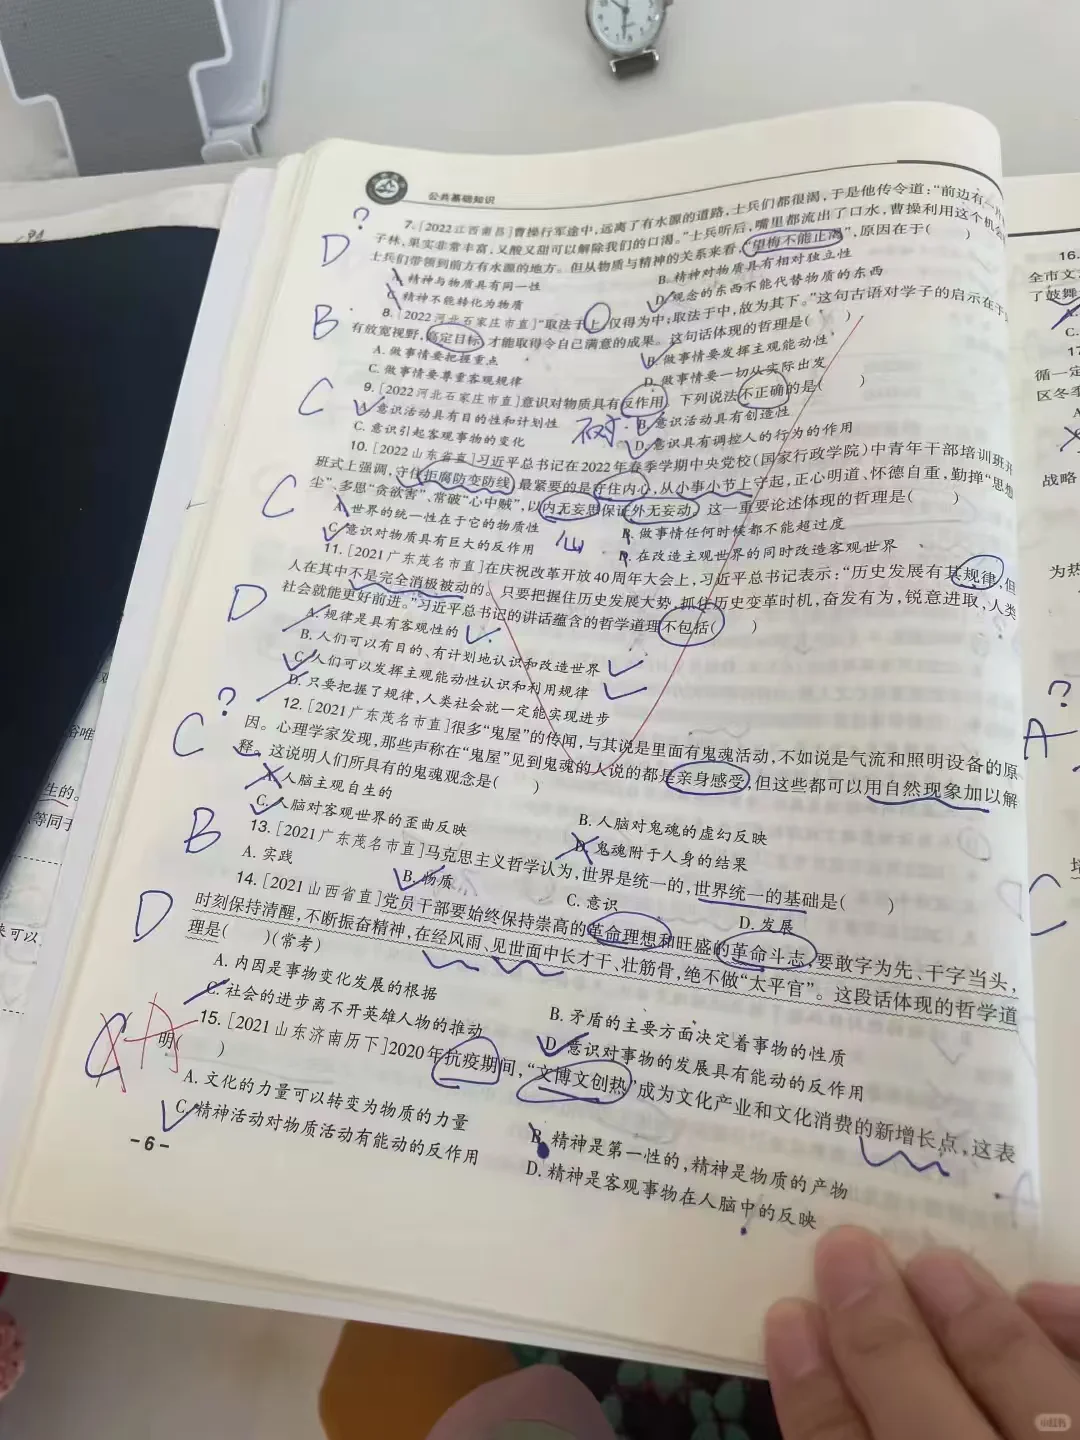 公共基础知识
?
D
7. [2022江西南昌]曹操行军途中,远离了有水源的道路,士兵们都很渴,于是他传令道:“前边有一片
子林,果实非常丰富,又酸又甜可以解除我们的口渴。”士兵听后,嘴里都流出了口水,曹操利用这个机会
士兵们带领到前方有水源的地方。但从物质与精神的关系来看,“望梅不能止渴”,原因在于( )
A. 精神与物质具有同一性
B. 精神对物质具有相对独立性
C. 精神不能转化为物质
D. 观念的东西不能代替物质的东西
B
8. [2022河北石家庄市直]“取法于上,仅得为中;取法于中,故为其下。”这句古语对学子的启示在于
有放宽视野,高定目标,才能取得令自己满意的成果。这句话体现的哲理是( )
A. 做事情要把握重点
B. 做事情要发挥主观能动性
C. 做事情要尊重客观规律
D. 做事情要一切从实际出发
C
9. [2022河北石家庄市直]意识对物质具有反作用,下列说法不正确的是( )
A. 意识活动具有目的性和计划性
B. 意识活动具有创造性
C. 意识引起客观事物的变化
D. 意识具有调控人的行为的作用
C
10. [2022山东省直]习近平总书记在2022年春季学期中央党校(国家行政学院)中青年干部培训班开
班式上强调,守住拒腐防变防线,最紧要的是守住内心,从小事小节上守起,正心明道、怀德自重,勤掸“思想
尘”、多思“贪欲害”、常破“心中贼”,以内无妄思保证外无妄动。这一重要论述体现的哲理是( )
A. 世界的统一性在于它的物质性
B. 做事情任何时候都不能超过度
C. 意识对物质具有巨大的反作用
D. 在改造主观世界的同时改造客观世界
D
11. [2021广东茂名市直]在庆祝改革开放40周年大会上,习近平总书记表示:“历史发展有其规律,但
人在其中不是完全消极被动的。只要把握住历史发展大势,抓住历史变革时机,奋发有为,锐意进取,人类
社会就能更好前进。”习近平总书记的讲话蕴含的哲学道理不包括( )
A. 规律是具有客观性的
B. 人们可以有目的、有计划地认识和改造世界
C. 人们可以发挥主观能动性认识和利用规律
D. 只要把握了规律,人类社会就一定能实现进步
?
C
12. [2021广东茂名市直]很多“鬼屋”的传闻,与其说是里面有鬼魂活动,不如说是气流和照明设备的原
因。心理学家发现,那些声称在“鬼屋”见到鬼魂的人说的都是亲身感受,但这些都可以用自然现象加以解
释。这说明人们所具有的鬼魂观念是( )
A. 人脑主观自生的
B. 人脑对鬼魂的虚幻反映
C. 人脑对客观世界的歪曲反映
D. 鬼魂附于人身的结果
B
13. [2021广东茂名市直]马克思主义哲学认为,世界是统一的,世界统一的基础是( )
A. 实践
B. 物质
C. 意识
D. 发展
D
14. [2021山西省直]党员干部要始终保持崇高的革命理想和旺盛的革命斗志,要敢字为先、干字当头,
时刻保持清醒,不断振奋精神,在经风雨、见世面中长才干、壮筋骨,绝不做“太平官”。这段话体现的哲学道
理是( )(常考)
A. 内因是事物变化发展的根据
B. 矛盾的主要方面决定着事物的性质
C. 社会的进步离不开英雄人物的推动
D. 意识对事物的发展具有能动的反作用
C
A
15. [2021山东济南历下]2020年抗疫期间,“文博文创热”成为文化产业和文化消费的新增长点,这表
明( )
A. 文化的力量可以转变为物质的力量
B. 精神是第一性的,精神是物质的产物
C. 精神活动对物质活动有能动的反作用
D. 精神是客观事物在人脑中的反映
-6-
16.
全市文
了鼓舞
A.
C.
17
循一定
区冬季
战略
为热
?
A
C
小红书